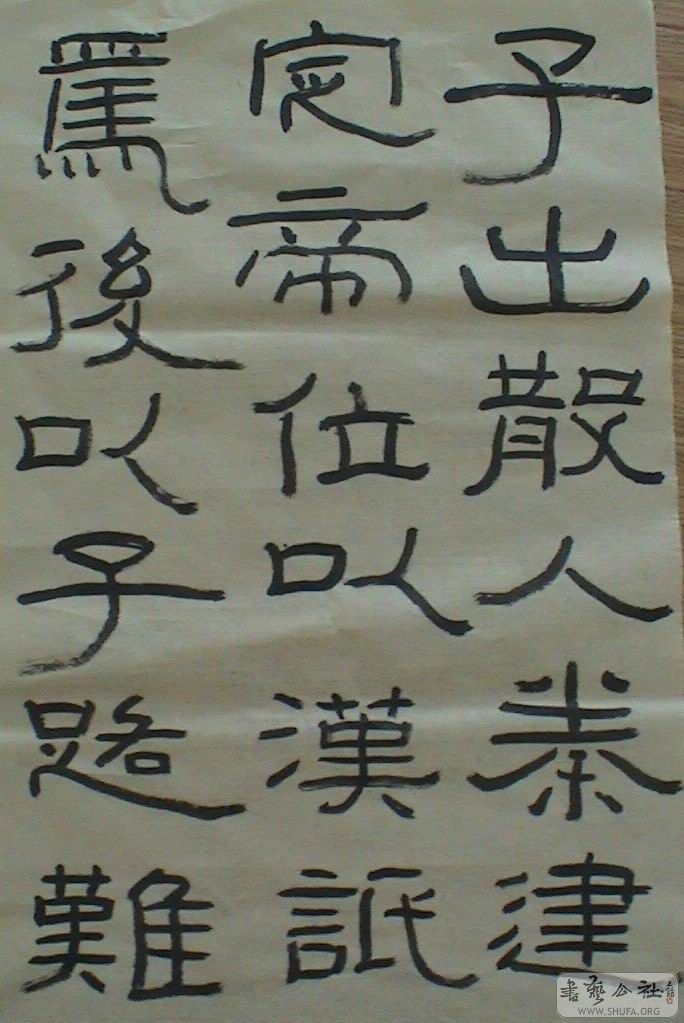 子出散入秦建
定帝位以漢詆
焉後以子路難
書藝公社
WWW.SHUFA.ORG